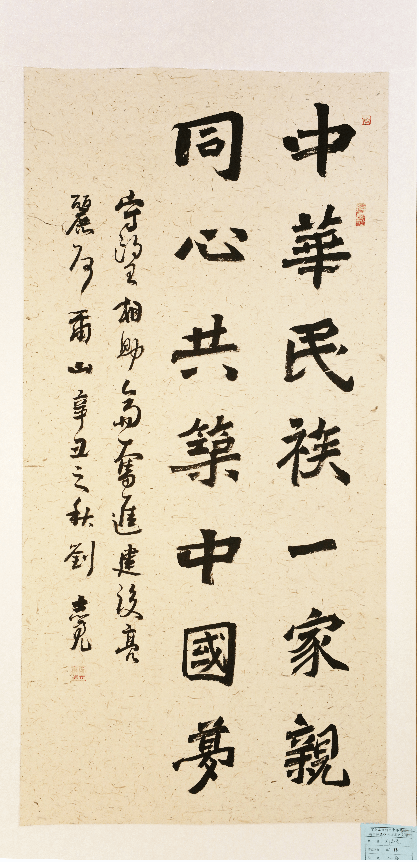 中華民族一家親
同心共築中國夢
守望相助齊奮進建設亮
麗阿爾山辛丑之秋劉志寬